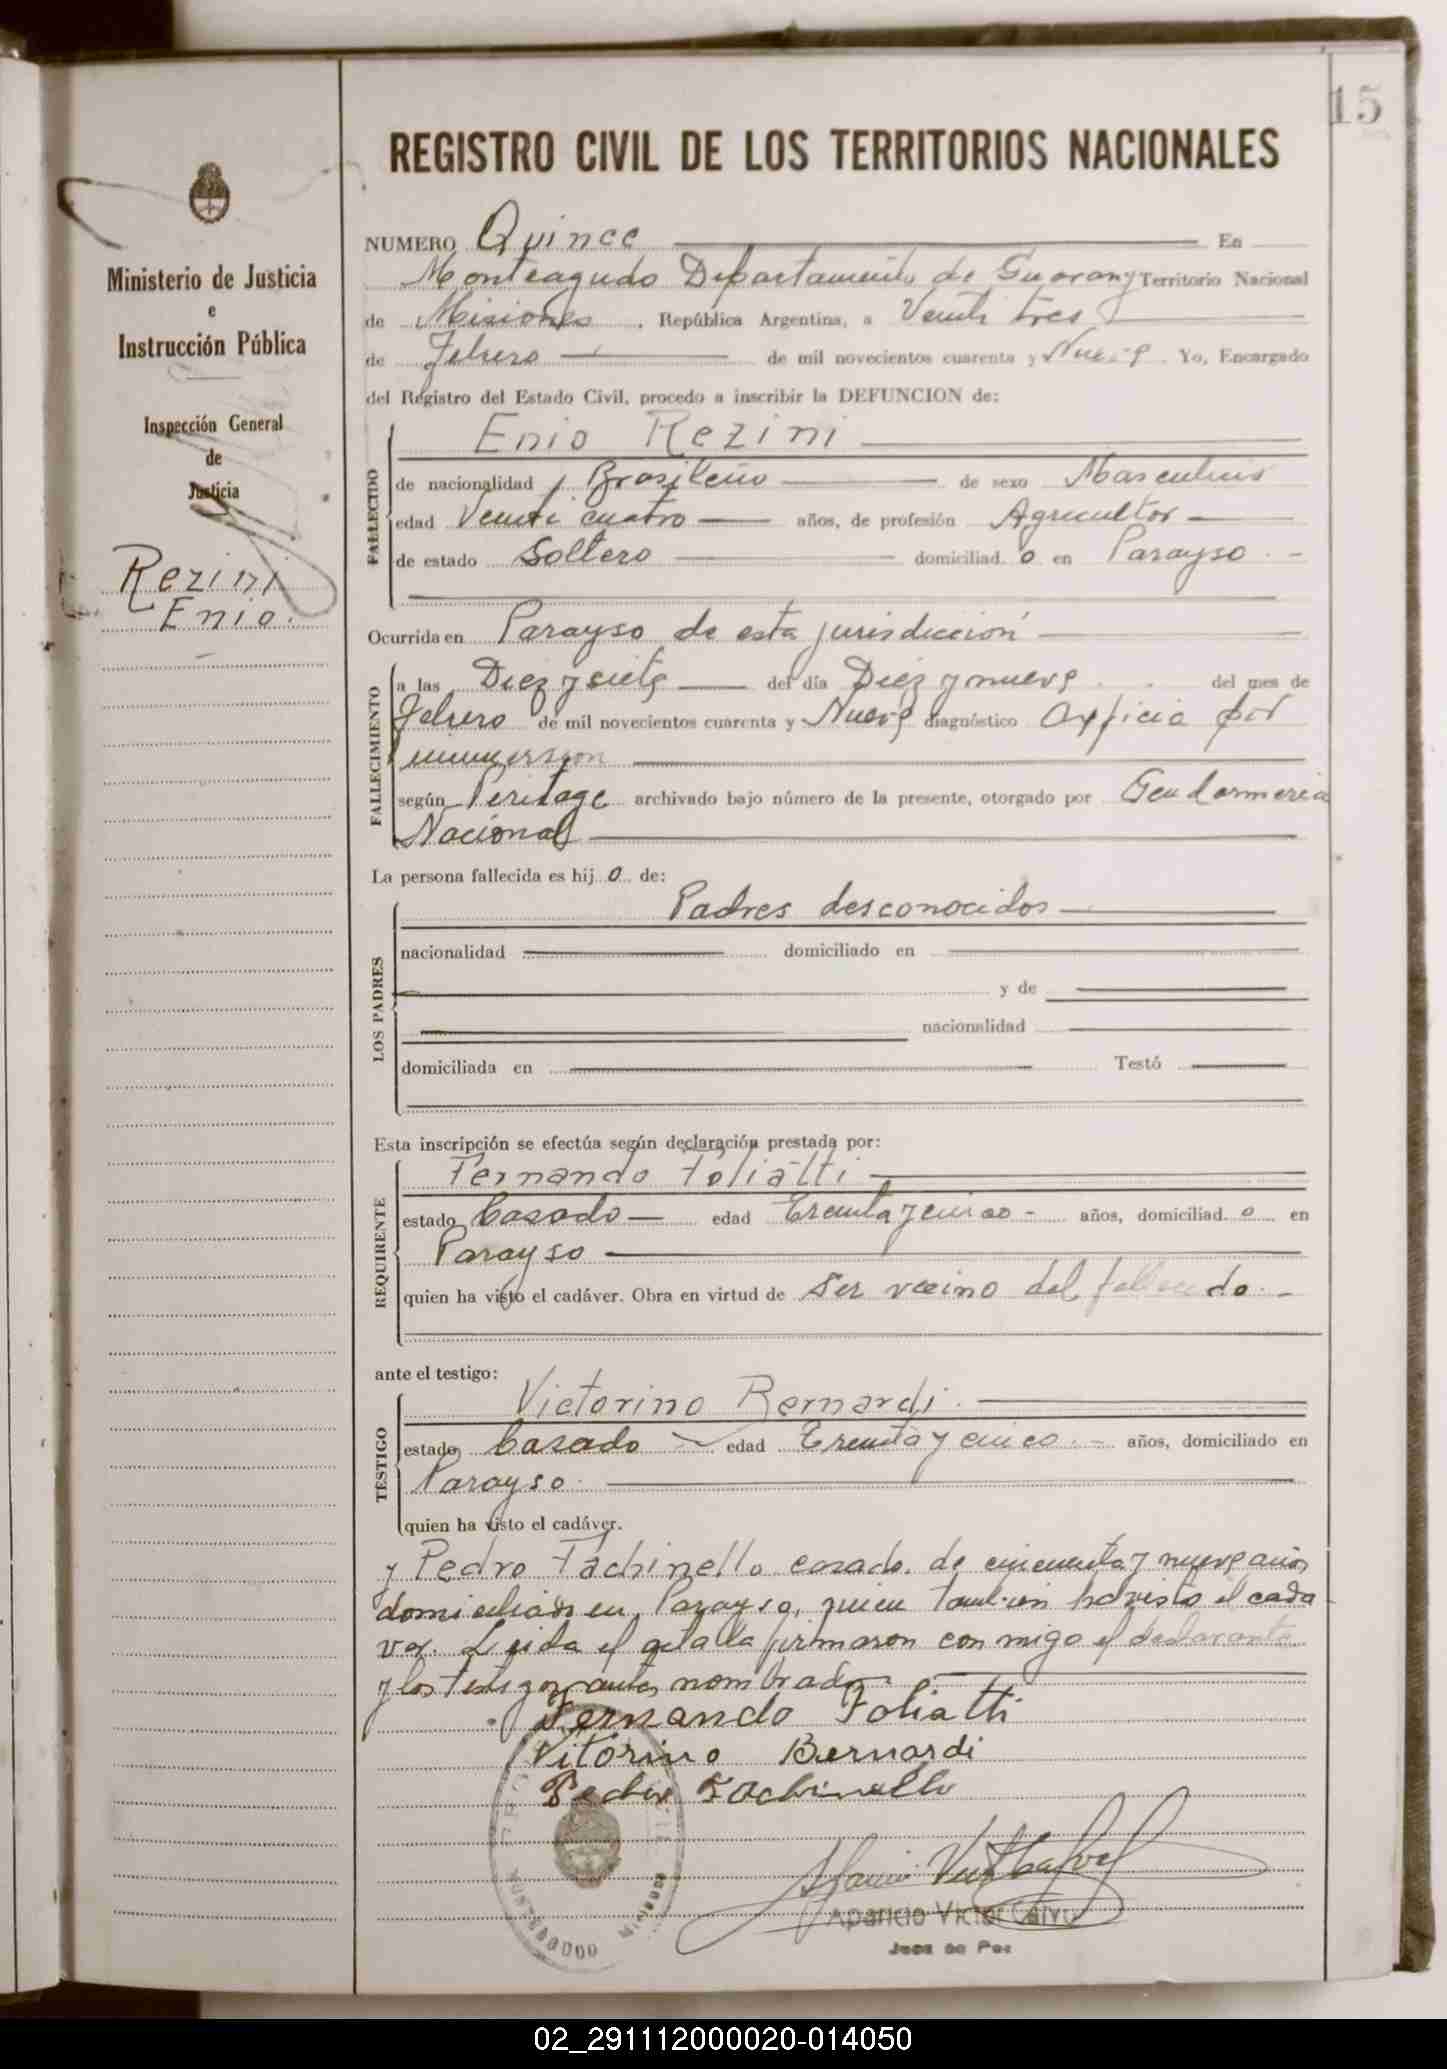 15
REGISTRO CIVIL DE LOS TERRITORIOS NACIONALES
Ministerio de Justicia
e
Instrucción Pública
Inspección General
de
Justicia
Rezini
Enio.
NUMERO Quince En
Monteagudo Departamento de Guarany Territorio Nacional
de Misiones, República Argentina, a Veinti tres
de Febrero de mil novecientos cuarenta y Nueve. Yo, Encargado
del Registro del Estado Civil, procedo a inscribir la DEFUNCION de:
FALLECIDO
Enio Rezini
de nacionalidad Brasileño de sexo Masculino
edad Veinti cuatro años, de profesión Agricultor
de estado Soltero domiciliad o en Parayso.
Ocurrida en Parayso de esta jurisdicción
FALLECIMIENTO
a las Diez y siete del día Diez y nueve del mes de
Febrero de mil novecientos cuarenta y Nueve diagnóstico Asficia por
inmersion
según Peritage archivado bajo número de la presente, otorgado por Gendarmeria
Nacional
La persona fallecida es hij o de:
LOS PADRES
Padres desconocidos
nacionalidad domiciliado en
y de
nacionalidad
domiciliada en Testó
Esta inscripción se efectúa según declaración prestada por:
REQUIRENTE
Fernando Foliatti
estado Casado edad Treinta y cinco años, domiciliad o en
Parayso
quien ha visto el cadáver. Obra en virtud de ser vecino del fallecido.
ante el testigo:
TESTIGO
Victorino Bernardi.
estado Casado edad Treinta y cinco. años, domiciliado en
Parayso.
quien ha visto el cadáver.
y Pedro Fachinello casado. de cincuenta y nueve años
domiciliado en Parayso, quien tambien ha visto el cada
ver. Leida el acta la firmaron con migo el declarante
y los testigos antes nombrados.
Fernando Foliatti
Vitorino Bernardi
Pedro Fachinello
Aparicio Victor Calvo
Juez de Paz
MONTEAGUDO
02_291112000020-014050